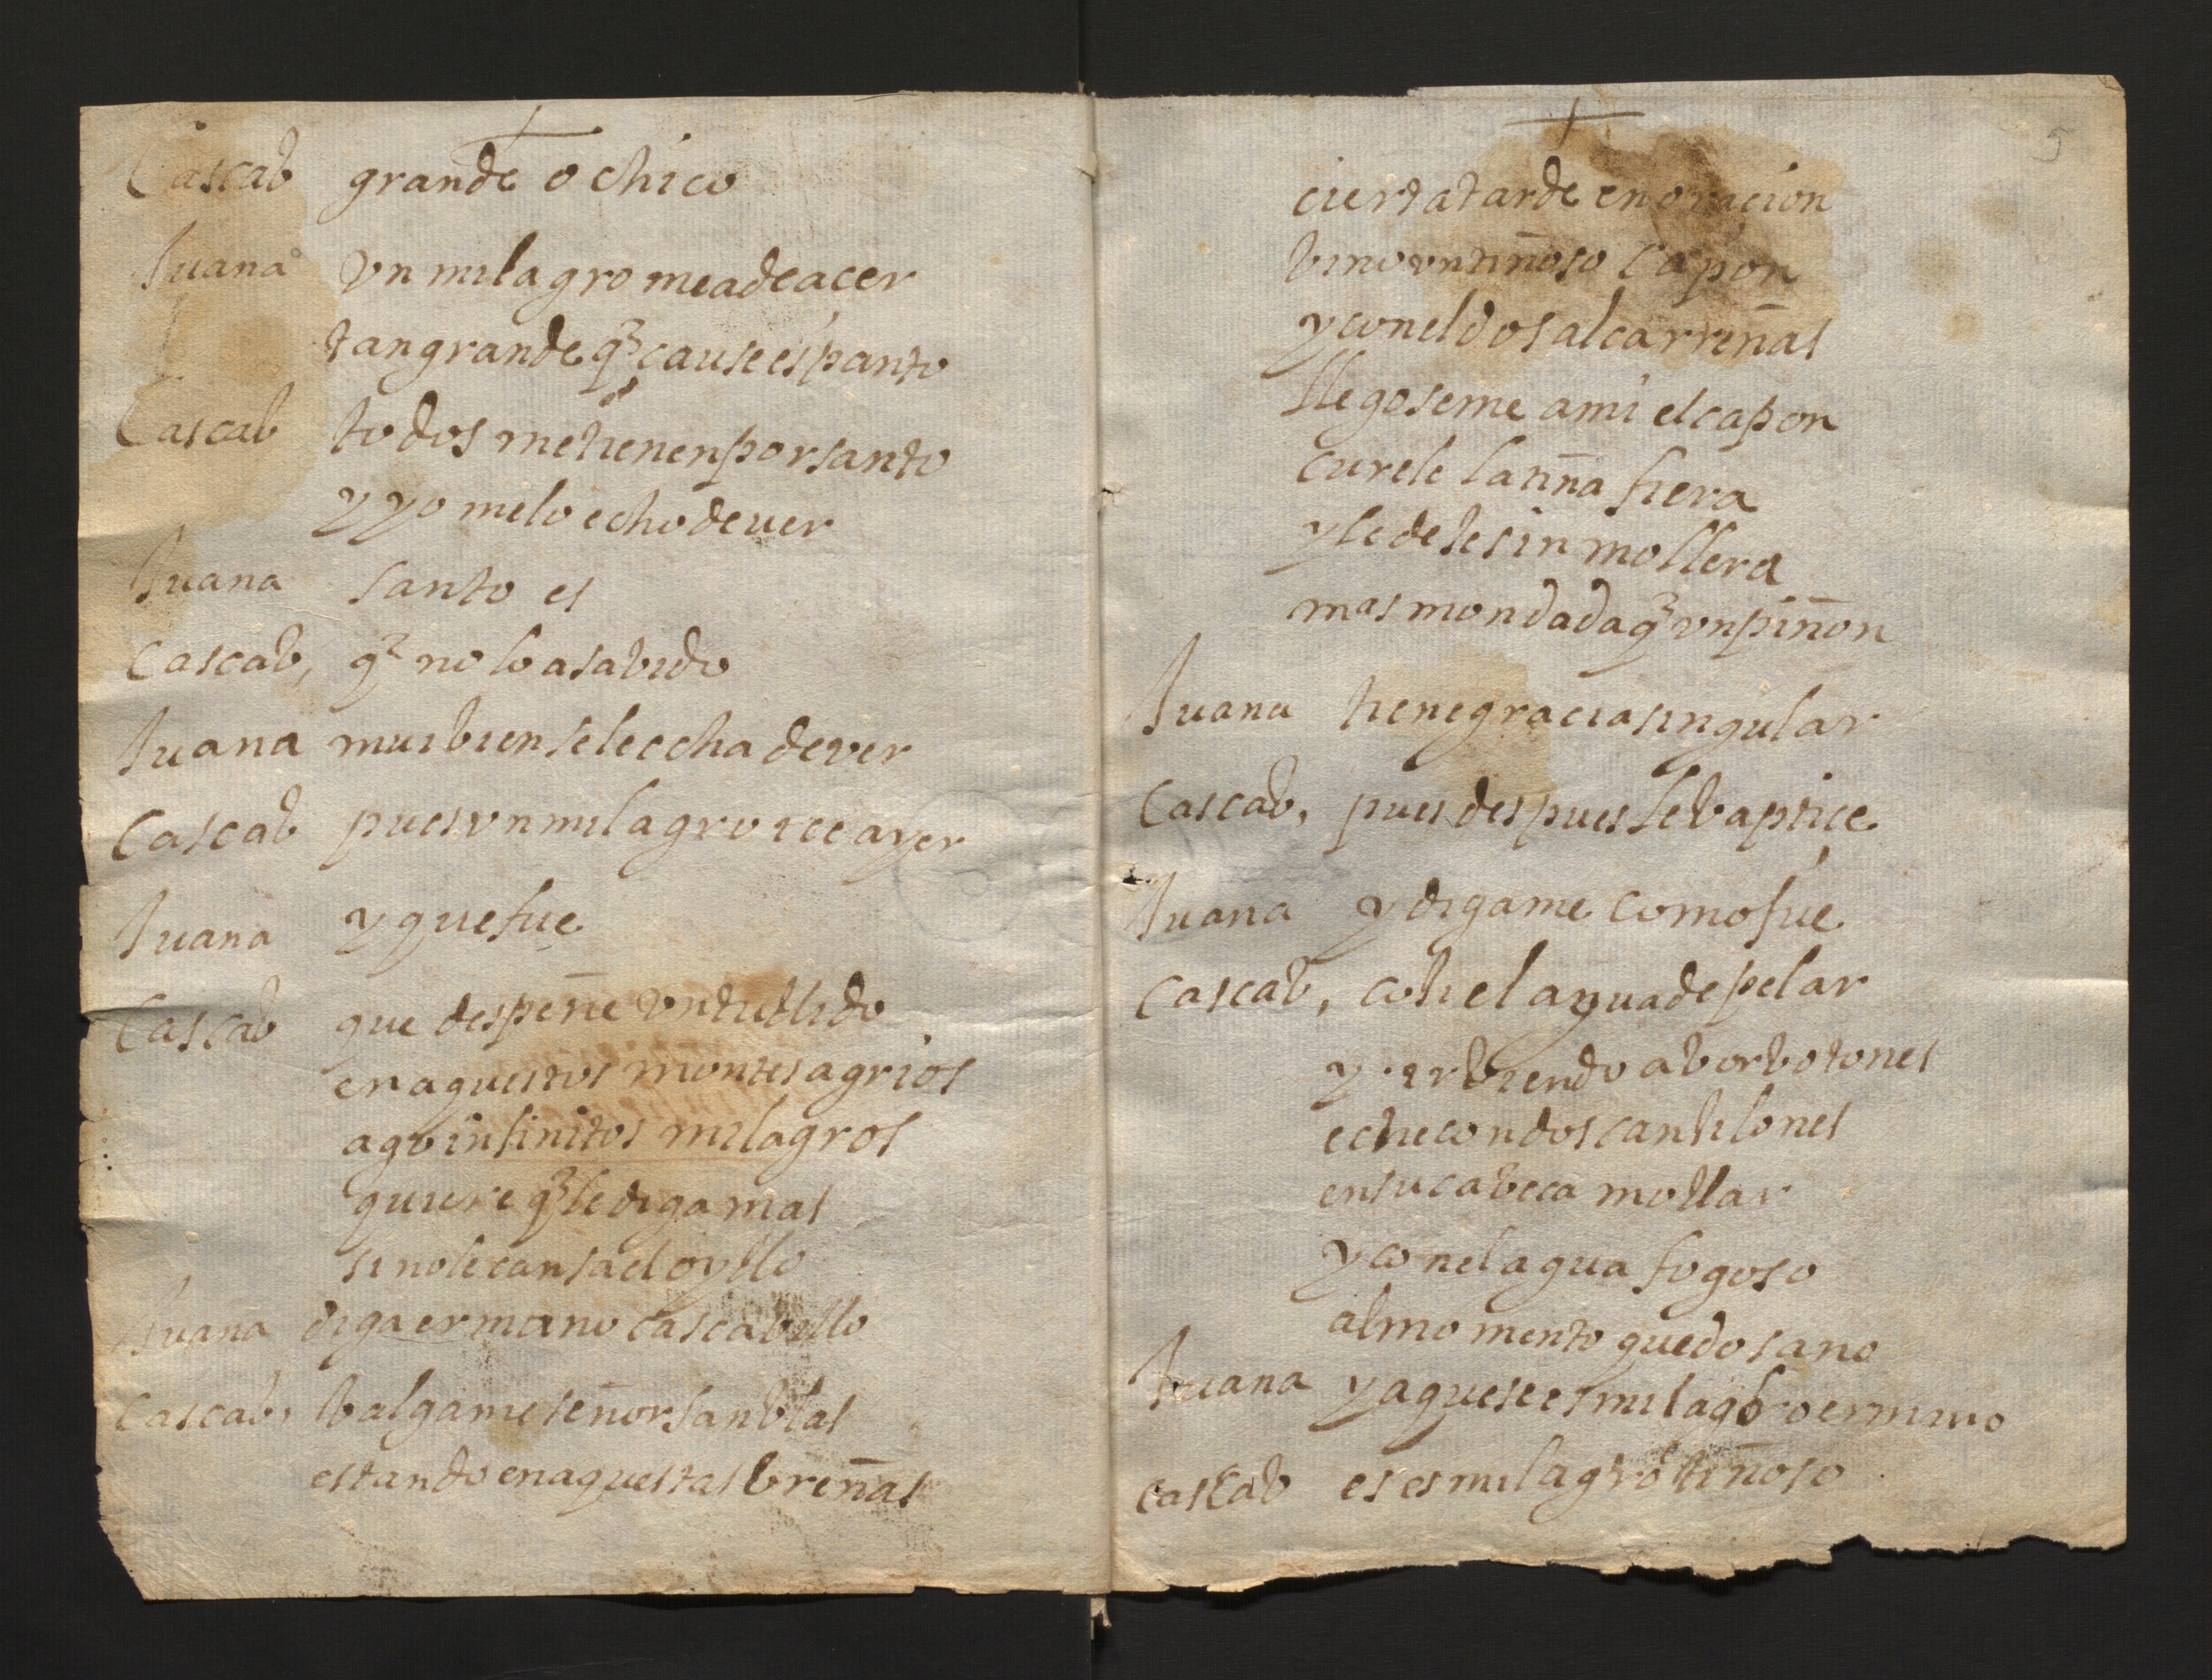 +
Cascab grande o chico
Juana vn milagro meadeacer
tangrande q̃ cause espanto
Cascab todos metienen por santo
y yo melo echo de uer
Juana santo es
Cascab, q̃ no lo asabido
Juana mui bien sele echa de ver
Cascab pues vn milagro ice ayer
Juana y que fue
Cascab que despeñe vn tullido
en aquestos montes agrios
ago infinitos milagros
quiere q̃ le diga mas
sinole cansa el oyllo
Juana diga ermano cascabillo
Cascab, balgame señor san blas
estando en aquestas breñas
+
5
cierta tarde en oracion
bino vn tiñoso capon
y con el dos alcarreñas
llegoseme ami el capon
curele la tiña fiera
y le dexe sin mollera
mas mondada q̃ vn piñon
Juana tiene gracia singular
Cascab, pues despues le baptice
Juana y digame como fue
Cascab, coxi el agua de pelar
y erbiendo a borbotones
eche con dos cantilones
en su cabeca mollar
y con el agua fogoso
al momento quedo sano
Juana ya quese es milagro ermno
cascab es es milagro tiñoso